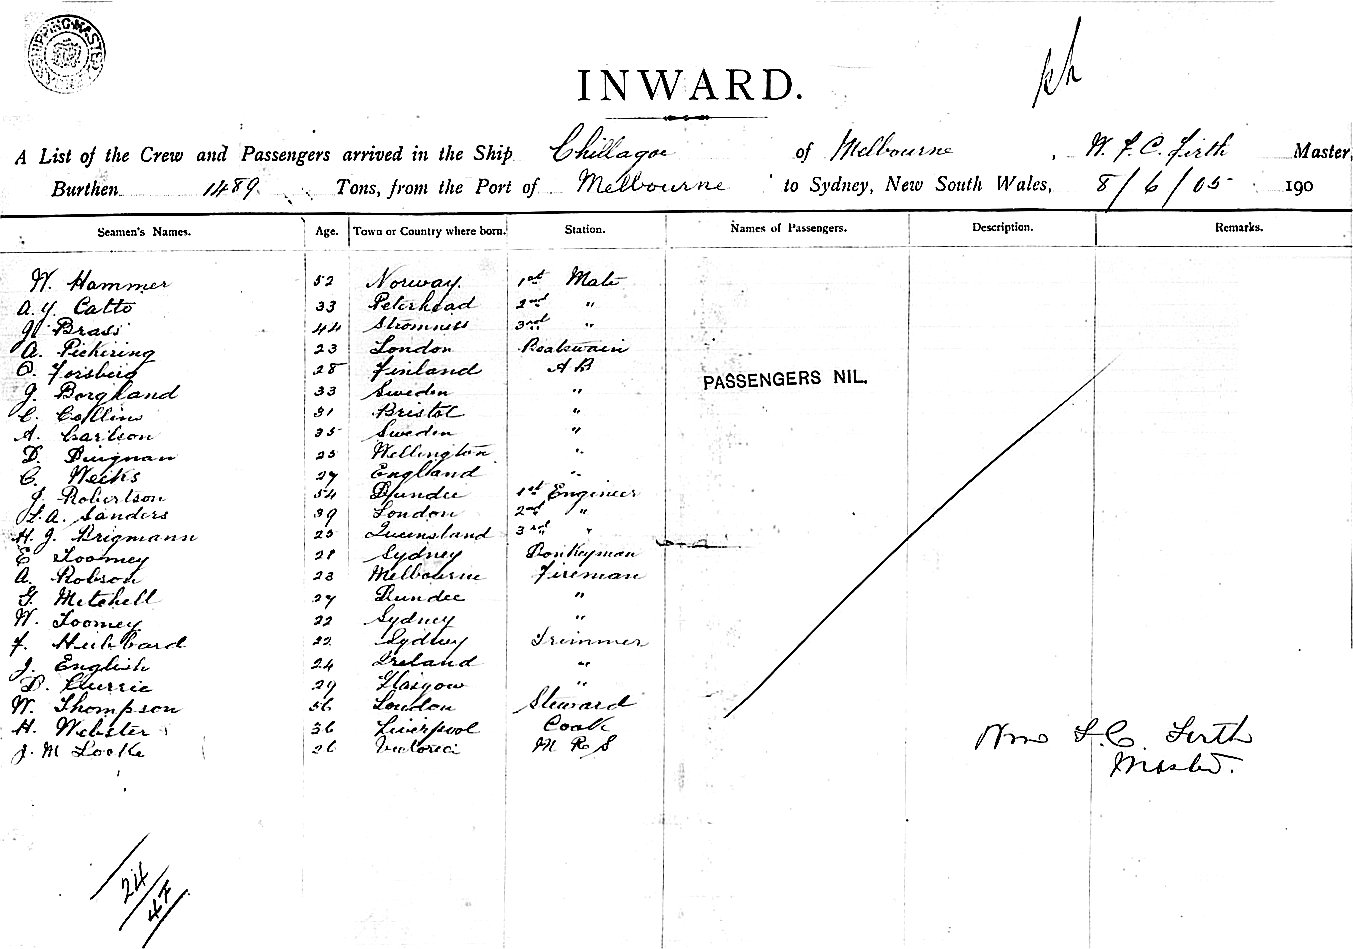 SHIPPING MASTER
kh
INWARD.
A List of the Crew and Passengers arrived in the Ship Chillagoe of Melbourne, W. F. C. Firth Master,
Burthen 1489 Tons, from the Port of Melbourne to Sydney, New South Wales, 8/6/05 190
Seamen's Names. Age. Town or Country where born. Station. Names of Passengers. Description. Remarks.
W. Hammer 52 Norway 1st Mate
A. Y. Catto 33 Peterhead 2nd "
J. Brass 44 Stromness 3rd "
A. Pickering 23 London Boatswain
O. Forsberg 28 Finland AB
PASSENGERS NIL.
J. Borgland 33 Sweden "
C. Collins 31 Bristol "
A. Carlson 35 Sweden "
D. Duignan 25 Wellington "
C. Weeks 27 England "
J. Robertson 54 Dundee 1st Engineer
L. A. Sanders 39 London 2nd "
H. J. Brigmann 25 Queensland 3rd "
E Toomey 28 Sydney Donkeyman
A. Robson 23 Melbourne Fireman
G. Mitchell 27 Dundee "
W. Toomey 22 Sydney "
F. Hubbard 22 Sydney Trimmer
J. English 24 Ireland "
D. Currie 29 Glasgow "
W. Thompson 56 London Steward
H. Webster 36 Liverpool Cook
J. M Looke 26 Victoria M R S
Wm F. C. Firth
Master.
24
4F